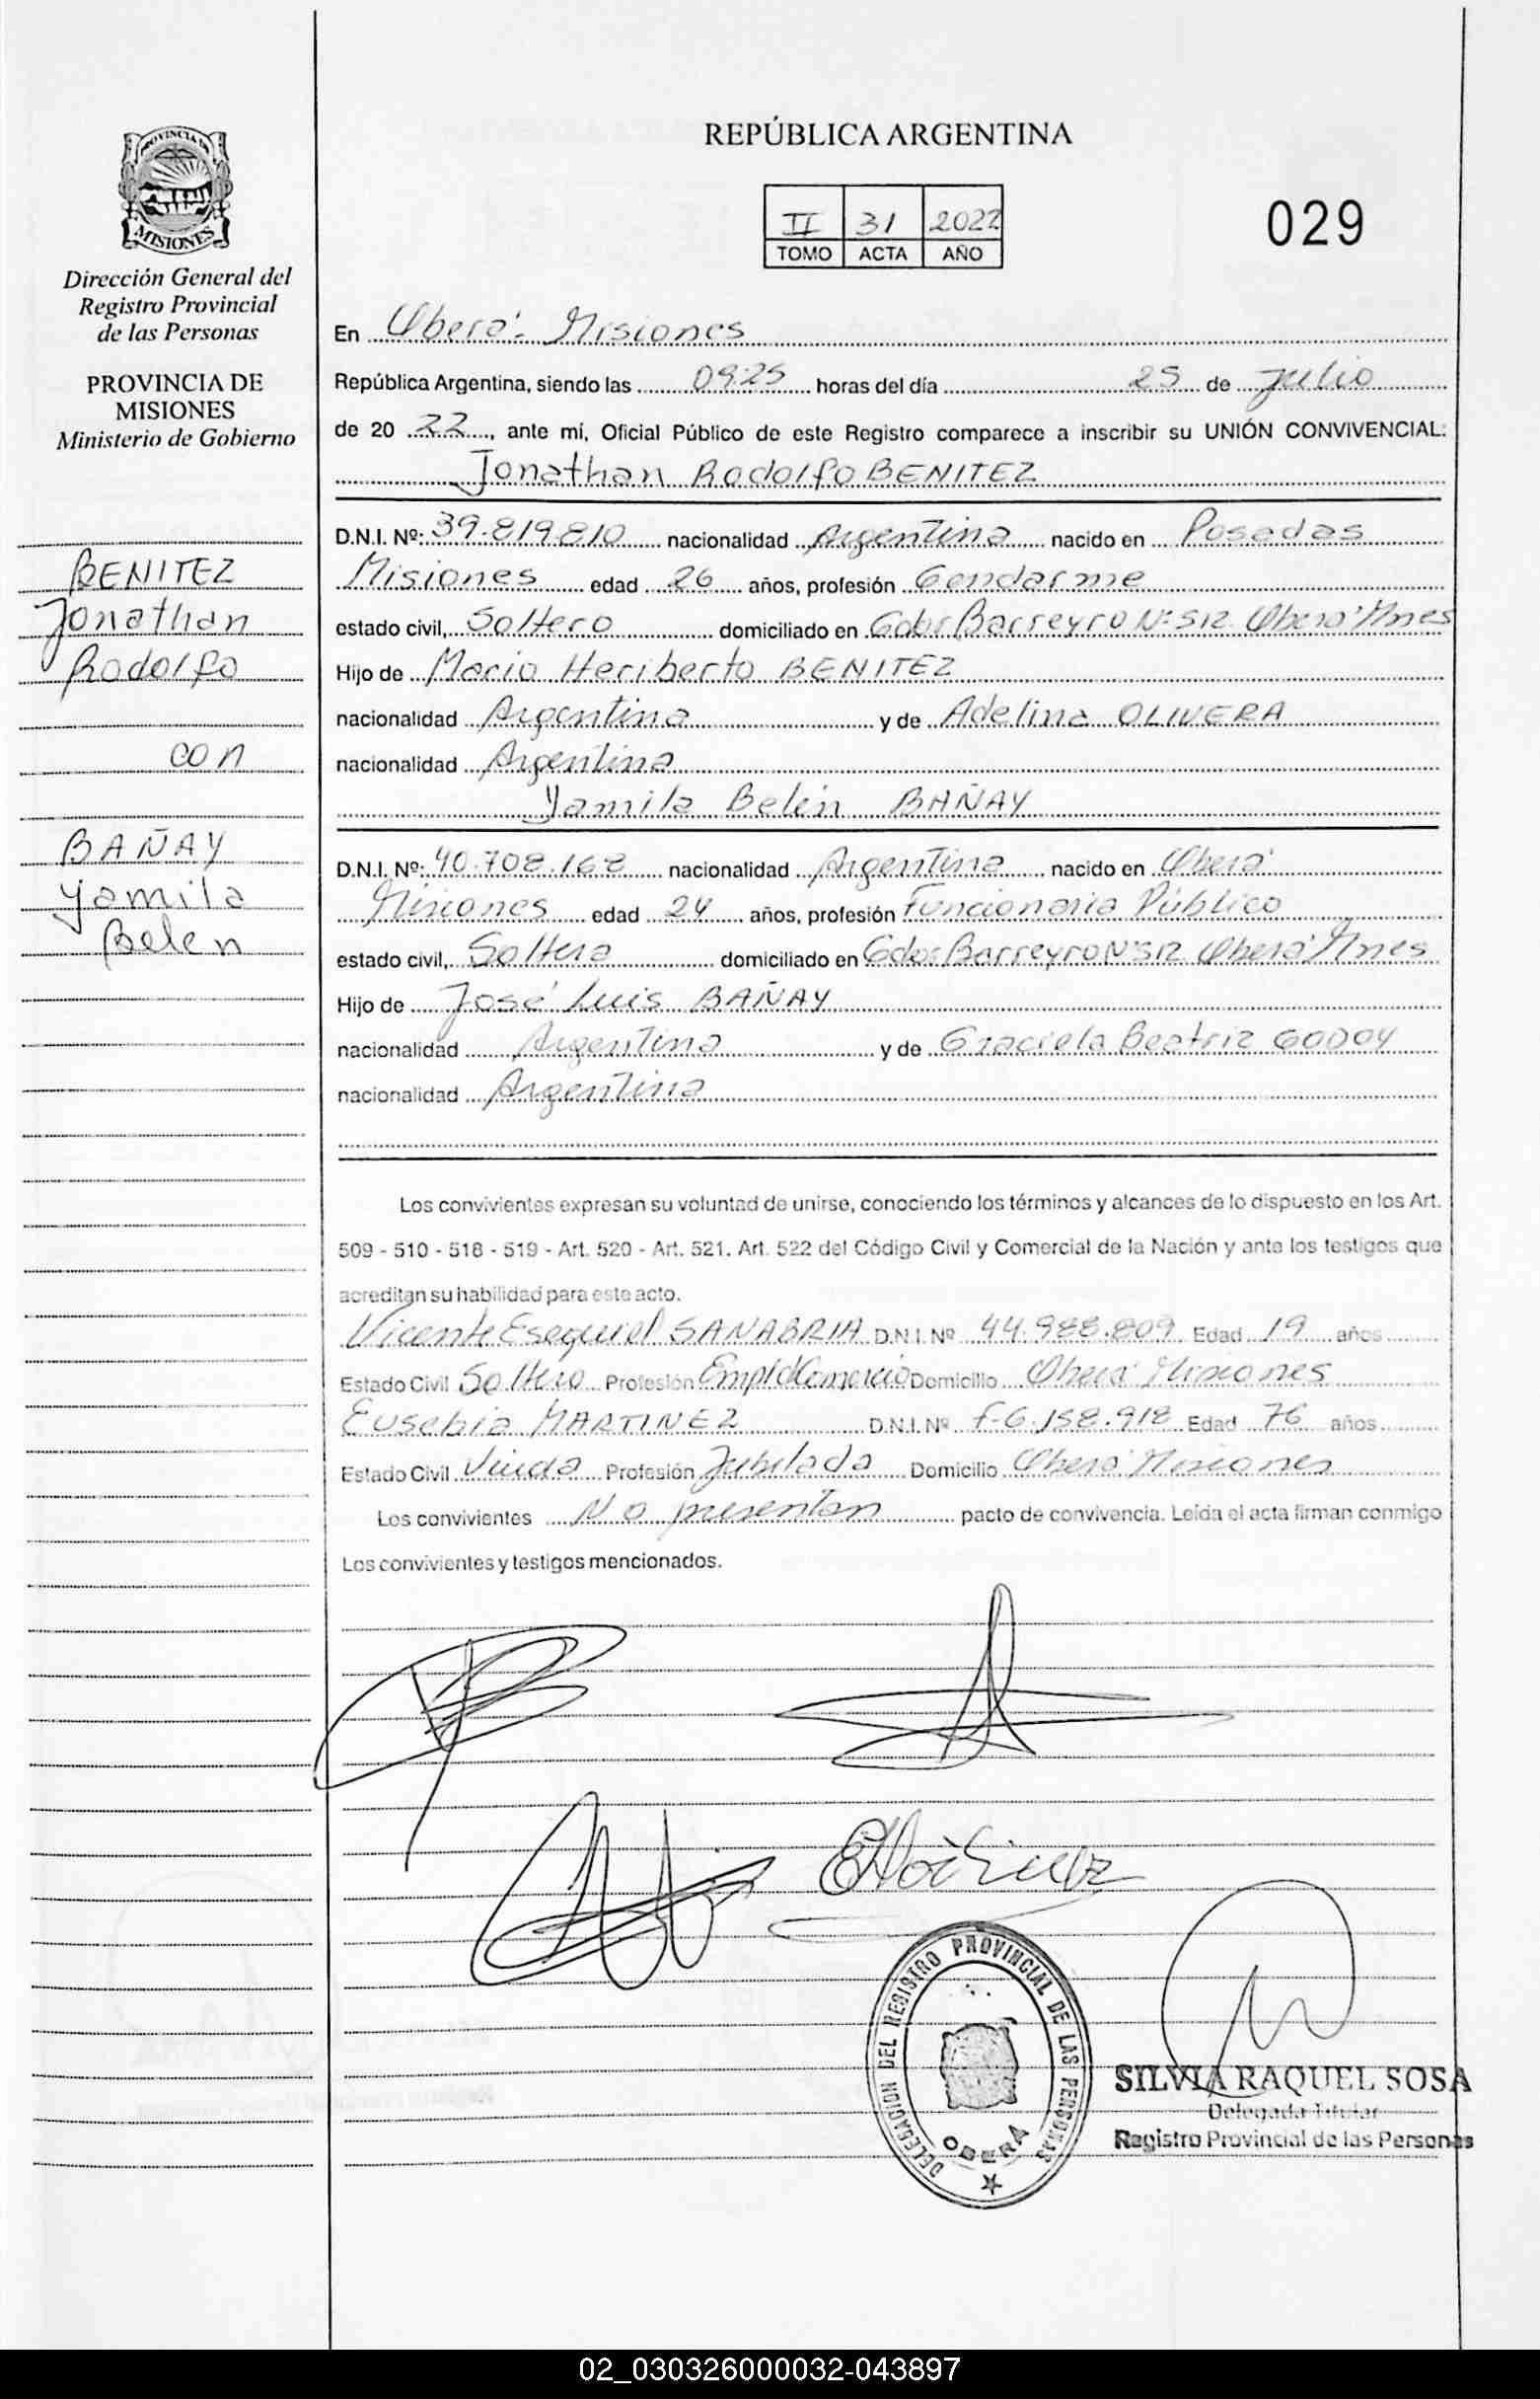 PROVINCIA DE
MISIONES
Dirección General del
Registro Provincial
de las Personas
PROVINCIA DE
MISIONES
Ministerio de Gobierno
BENITEZ
Jonathan
Rodolfo
con
BAÑAY
Yamila
Belen
REPÚBLICA ARGENTINA
II 31 2022
TOMO ACTA AÑO
029
En Oberá - Misiones
República Argentina, siendo las 09:25 horas del día 25 de Julio
de 20 22, ante mí, Oficial Público de este Registro comparece a inscribir su UNIÓN CONVIVENCIAL:
Jonathan Rodolfo BENITEZ
D.N.I. Nº: 39.819.810 nacionalidad Argentina nacido en Posadas
Misiones edad 26 años, profesión Gendarme
estado civil, Soltero domiciliado en Gdor Barreyro Nº 512 Oberá Mnes
Hijo de Mario Heriberto BENITEZ
nacionalidad Argentina y de Adelina OLIVERA
nacionalidad Argentina
Yamila Belén BAÑAY
D.N.I. Nº: 40.708.168 nacionalidad Argentina nacido en Oberá
Misiones edad 24 años, profesión Funcionaria Público
estado civil, Soltera domiciliado en Gdor Barreyro Nº 512 Oberá Mnes
Hijo de José Luis BAÑAY
nacionalidad Argentina y de Graciela Beatriz GODOY
nacionalidad Argentina
Los convivientes expresan su voluntad de unirse, conociendo los términos y alcances de lo dispuesto en los Art.
509 - 510 - 518 - 519 - Art. 520 - Art. 521. Art. 522 del Código Civil y Comercial de la Nación y ante los testigos que
acreditan su habilidad para este acto.
Vicente Esequiel SANABRIA D.N.I. Nº 44.988.809 Edad 19 años
Estado Civil Soltero Profesión Empl d Comercio Domicilio Oberá Misiones
Eusebia MARTINEZ D.N.I. Nº f-6.158.918 Edad 76 años
Estado Civil Viuda Profesión Jubilada Domicilio Oberá Misiones
Los convivientes No presentan pacto de convivencia. Leída el acta firman conmigo
Los convivientes y testigos mencionados.
DELEGACION DEL REGISTRO PROVINCIAL DE LAS PERSONAS
OBERA
SILVIA RAQUEL SOSA
Delegada Titular
Registro Provincial de las Personas
02_030326000032-043897